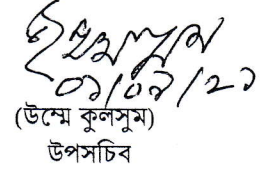 ০১/০৯/২১
(উম্মে কুলসুম)
উপসচিব